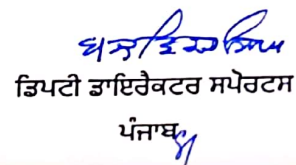 ਡਿਪਟੀ ਡਾਇਰੈਕਟਰ ਸਪੋਰਟਸ
ਪੰਜਾਬ